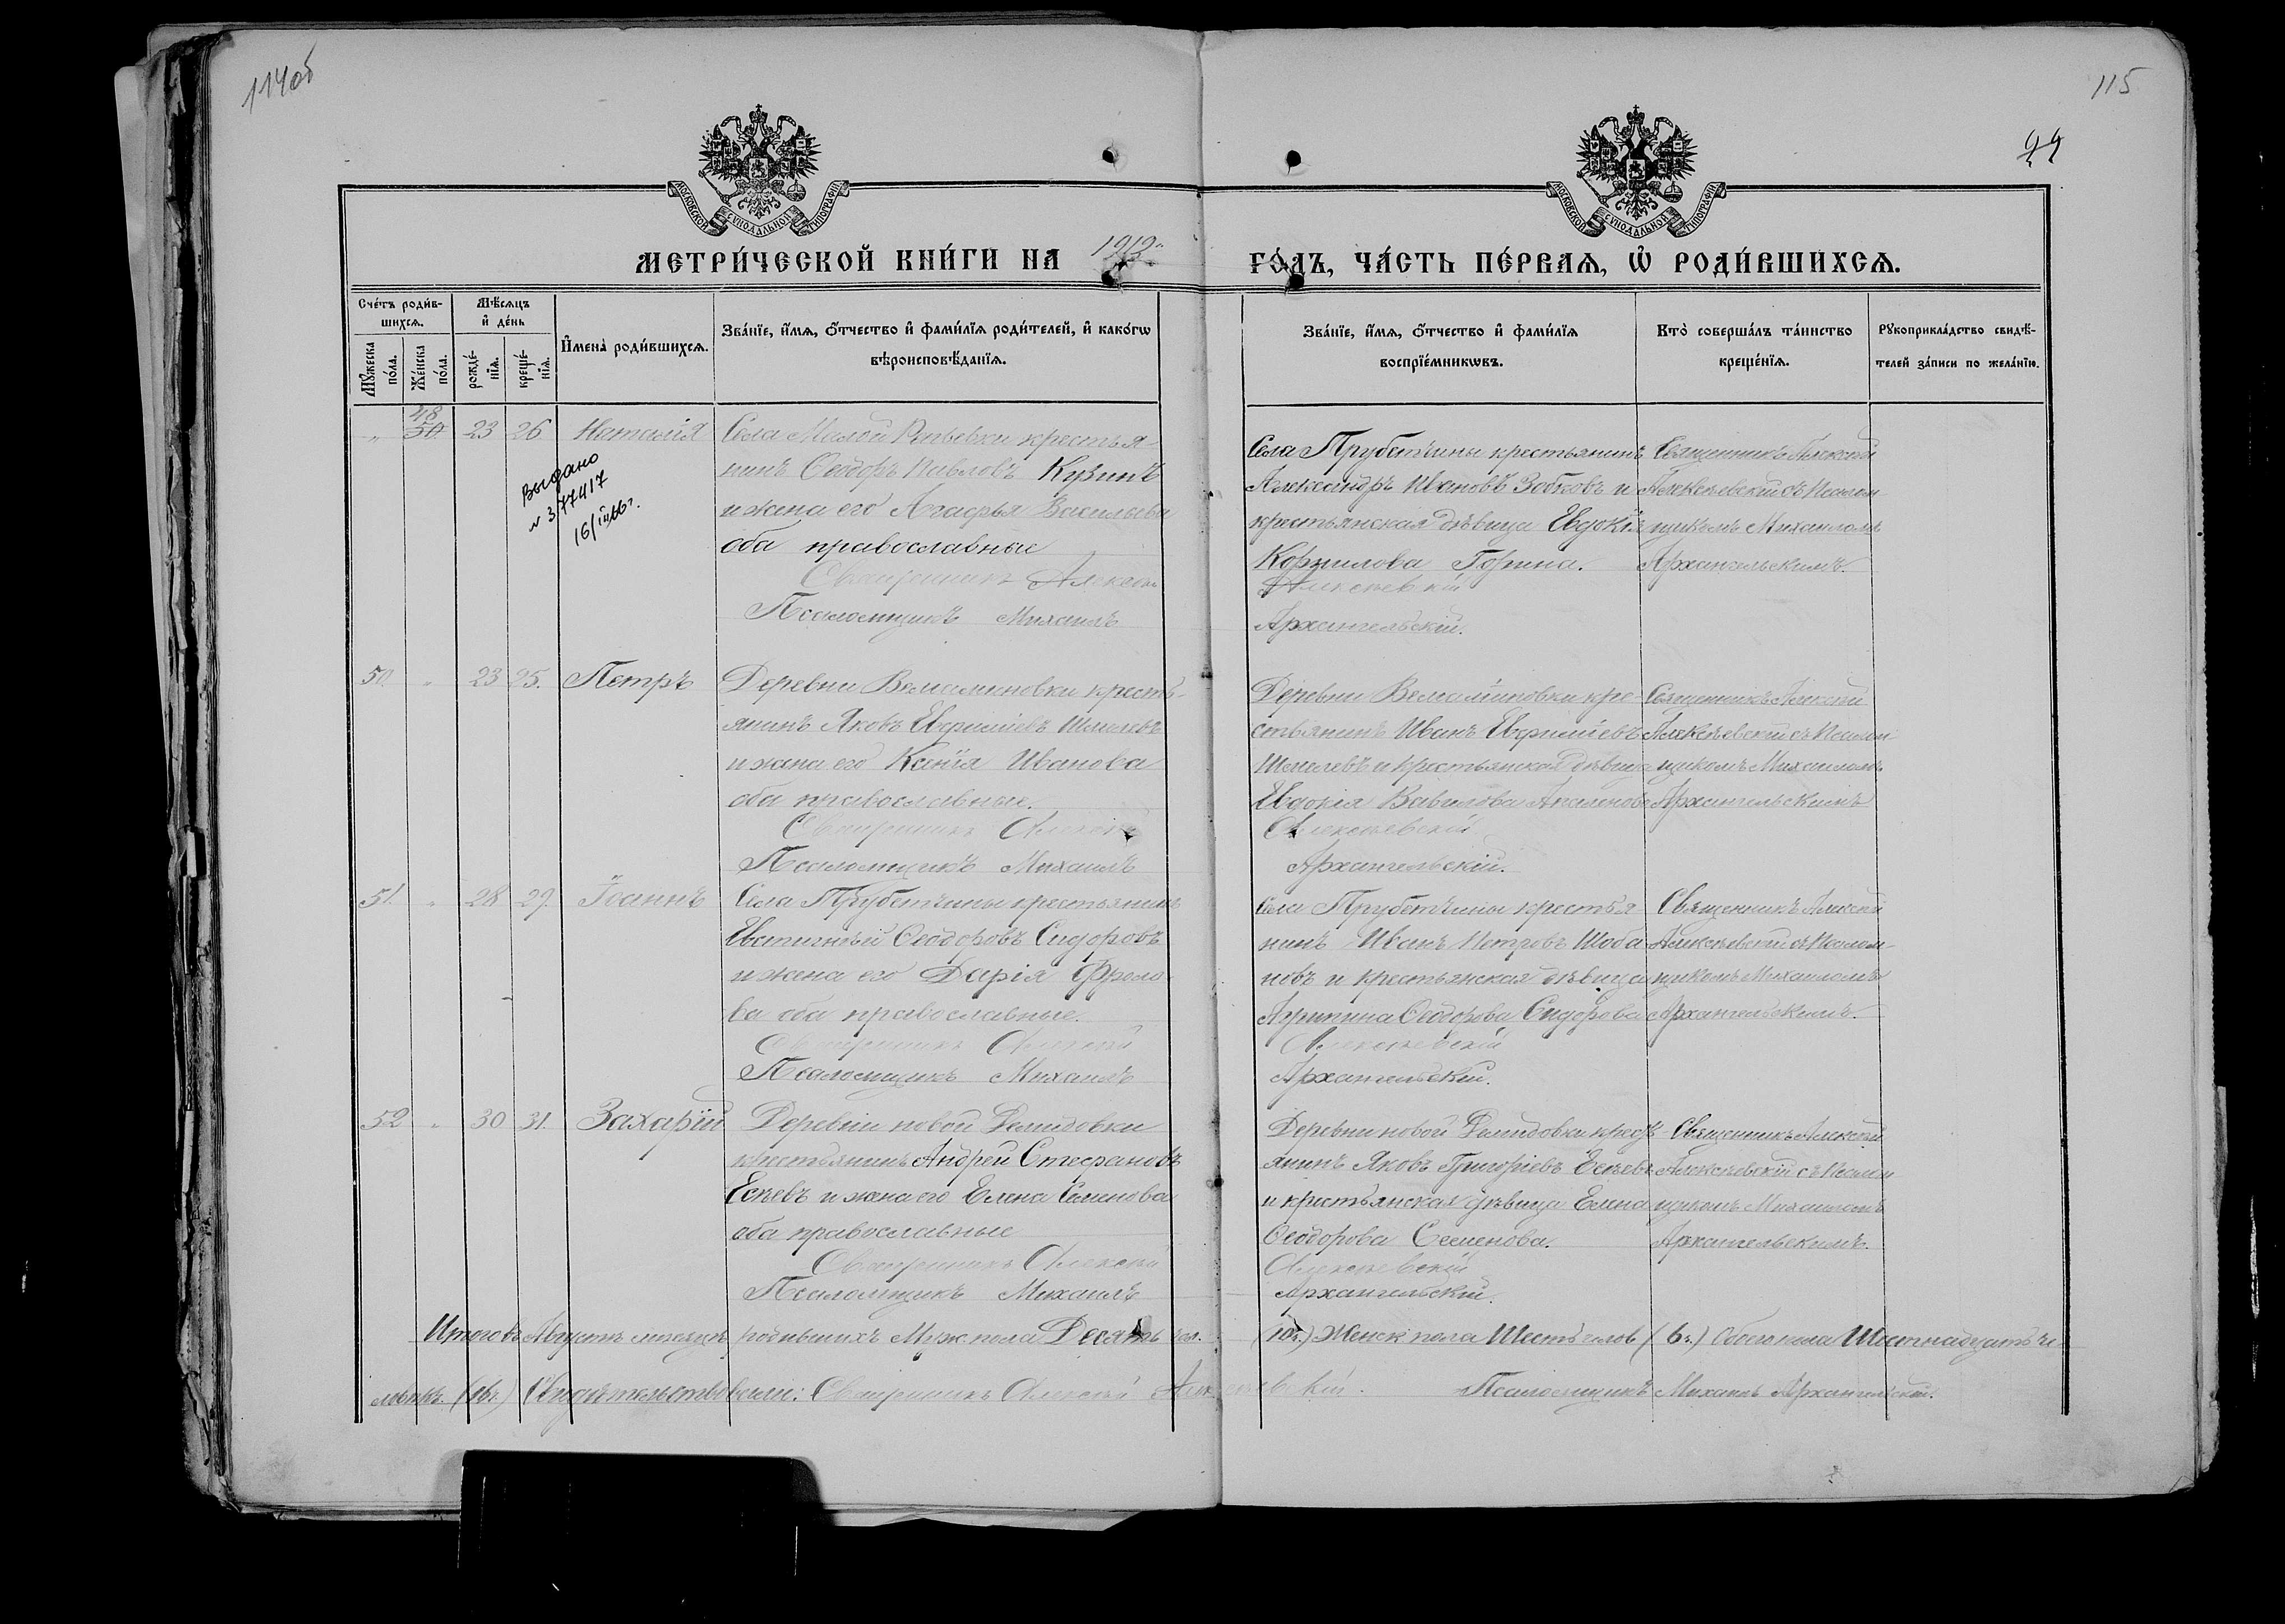 114об
115
44
МОСКОВСКОЙ СѴНОДАЛЬНОЙ ТИПОГРАФІИ
МОСКОВСКОЙ СѴНОДАЛЬНОЙ ТИПОГРАФІИ
МЕТРИ́ЧЕСКОЙ КНИ́ГИ НА 1912 ГО́ДЪ, ЧА́СТЬ ПЕ́РВАѦ, Ѡ҆ РОДИ́ВШИХСѦ.
Сче́тъ роди́в-
шихсѧ.
Мꙋ́жеска по́ла.
Же́нска по́ла.
Мѣ́сѧцъ
и҆ де́нь
рожде́-
нїѧ.
креще́-
нїѧ.
И҆мена̀ роди́вшихсѧ.
Зва́нїе, и҆́мѧ, ѻ҆́тчество и҆ фами́лїѧ роди́телей, и҆ како́гѡ
вѣроисповѣ́данїѧ.
Зва́нїе, и҆́мѧ, ѻ҆́тчество и҆ фами́лїѧ
воспрїе́мникѡвъ.
Кто̀ соверша́лъ та́инство
креще́нїѧ.
Рꙋкоприкла́дство свидѣ́-
телей за́писи по жела́нїю.
48
" 50 23 26 Наталія
Выдано
№ 377417
16/III 66г.
Села Малой Репьевки крестья-
нинъ Ѳеодоръ Павловъ Кузинъ
и жена его Агафья Васильева
оба православные
Священникъ Алексѣй
Псаломщикъ Михаилъ
Села Трубетчины крестьянинъ
Александръ Ивановъ Зобковъ и
крестьянская дѣвица Евдокія
Корнилова Горина.
Алексѣевскій
Архангельскій.
Священникъ Алексѣй
Алексѣевскій съ Псалом-
щикомъ Михаиломъ
Архангельскимъ.
50. " 23 25. Петръ
Деревни Вельяминовки кресть-
янинъ Яковъ Евфиміевъ Шмелевъ
и жена его Ксенія Иванова
оба православные.
Священникъ Алексѣй
Псаломщикъ Михаилъ
Деревни Вельяминовки кре-
стьянинъ Иванъ Евфиміевъ
Шмелевъ и крестьянская дѣвица
Евдокія Вавилова
Алексѣевскій
Архангельскій.
Священникъ Алексѣй
Алексѣевскій съ Псалом-
щикомъ Михаиломъ
Архангельскимъ
51. " 28 29. Іоаннъ
Села Трубетчины крестьянинъ
Евстигнѣй Ѳеодоровъ Сидоровъ
и жена его Дарія Фроло-
ва оба православные.
Священникъ Алексѣй
Псаломщикъ Михаилъ
Села Трубетчины крестья-
нинъ Иванъ Петровъ Шоба-
новъ и крестьянская дѣвица
Агрипина Ѳеодорова Сидорова
Алексѣевскій
Архангельскій.
Священникъ Алексѣй
Алексѣевскій съ Псалом-
щикомъ Михаиломъ
Архангельскимъ.
52 " 30 31. Захарій
Деревни новой Демидовки
крестьянинъ Андрей Стефановъ
Есѣевъ и жена его Елена Семенова
оба православные
Священникъ Алексѣй
Псаломщикъ Михаилъ
Деревни новой Демидовки крест-
янинъ Яковъ Григоріевъ Есѣевъ
и крестьянская дѣвица Елена
Ѳеодорова Семенова.
Алексѣевскій
Архангельскій.
Священникъ Алексѣй
Алексѣевскій съ Псалом-
щикомъ Михаиломъ
Архангельскимъ.
Итого въ Августѣ мѣсяцѣ родившихъ Муж. пола Десять чел. (10 ч.) Женск пола Шесть челов (6 ч.) Обоего пола Шестнадцать че-
ловѣкъ. (16 ч.) Свидѣтельствовали: Священникъ Алексѣй Алексѣевскій. Псаломщикъ Михаилъ Архангельскій.